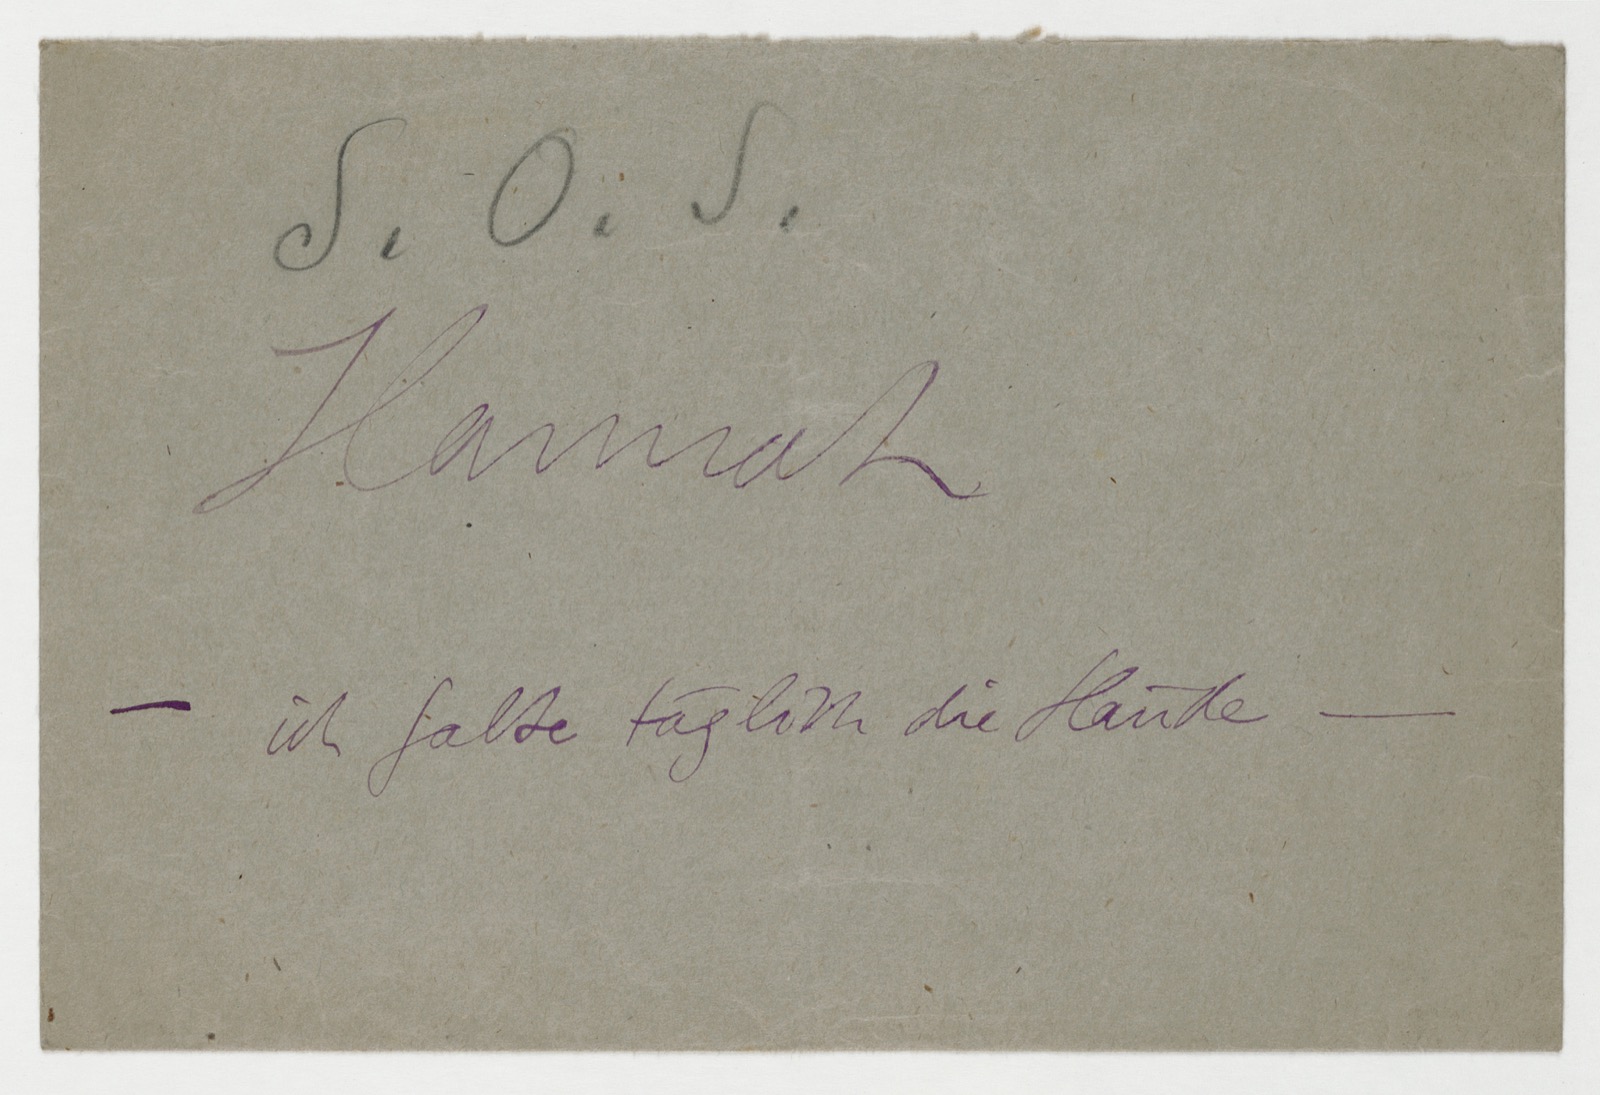 S. O. S.
Hannah
— ich falte täglich die Hände —